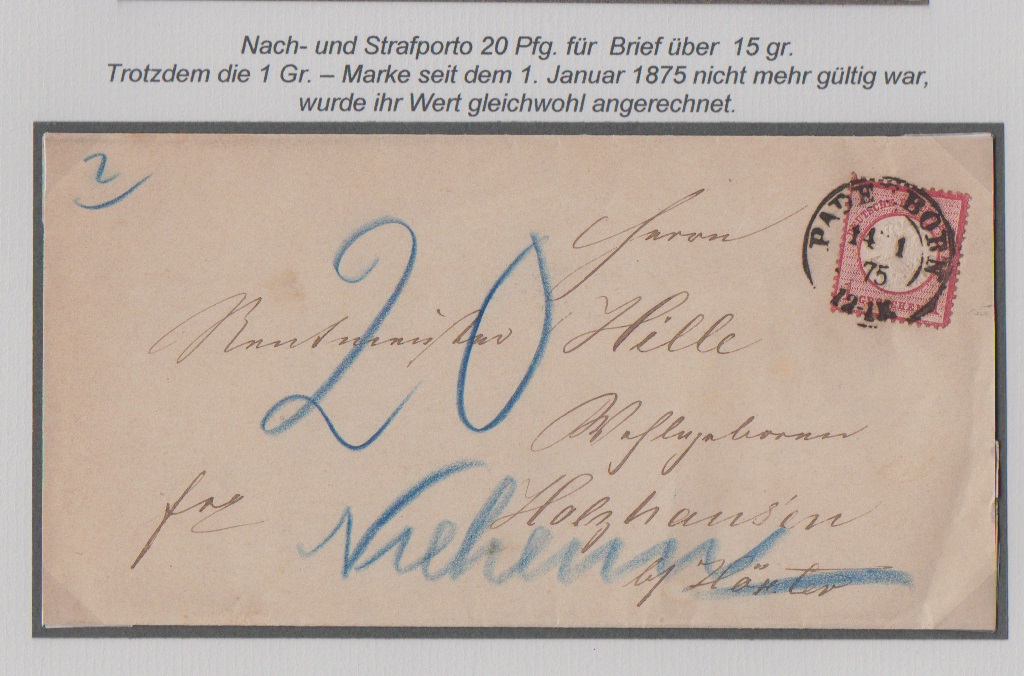 Nach- und Strafporto 20 Pfg. für Brief über 15 gr.
Trotzdem die 1 Gr. – Marke seit dem 1. Januar 1875 nicht mehr gültig war,
wurde ihr Wert gleichwohl angerechnet.
2
20
Herrn
Rentmeister Hille
Wohlgeboren
frc
Holzhausen
Nieheim
b/ Höxter
PADERBORN
14 1
75
12-1N.